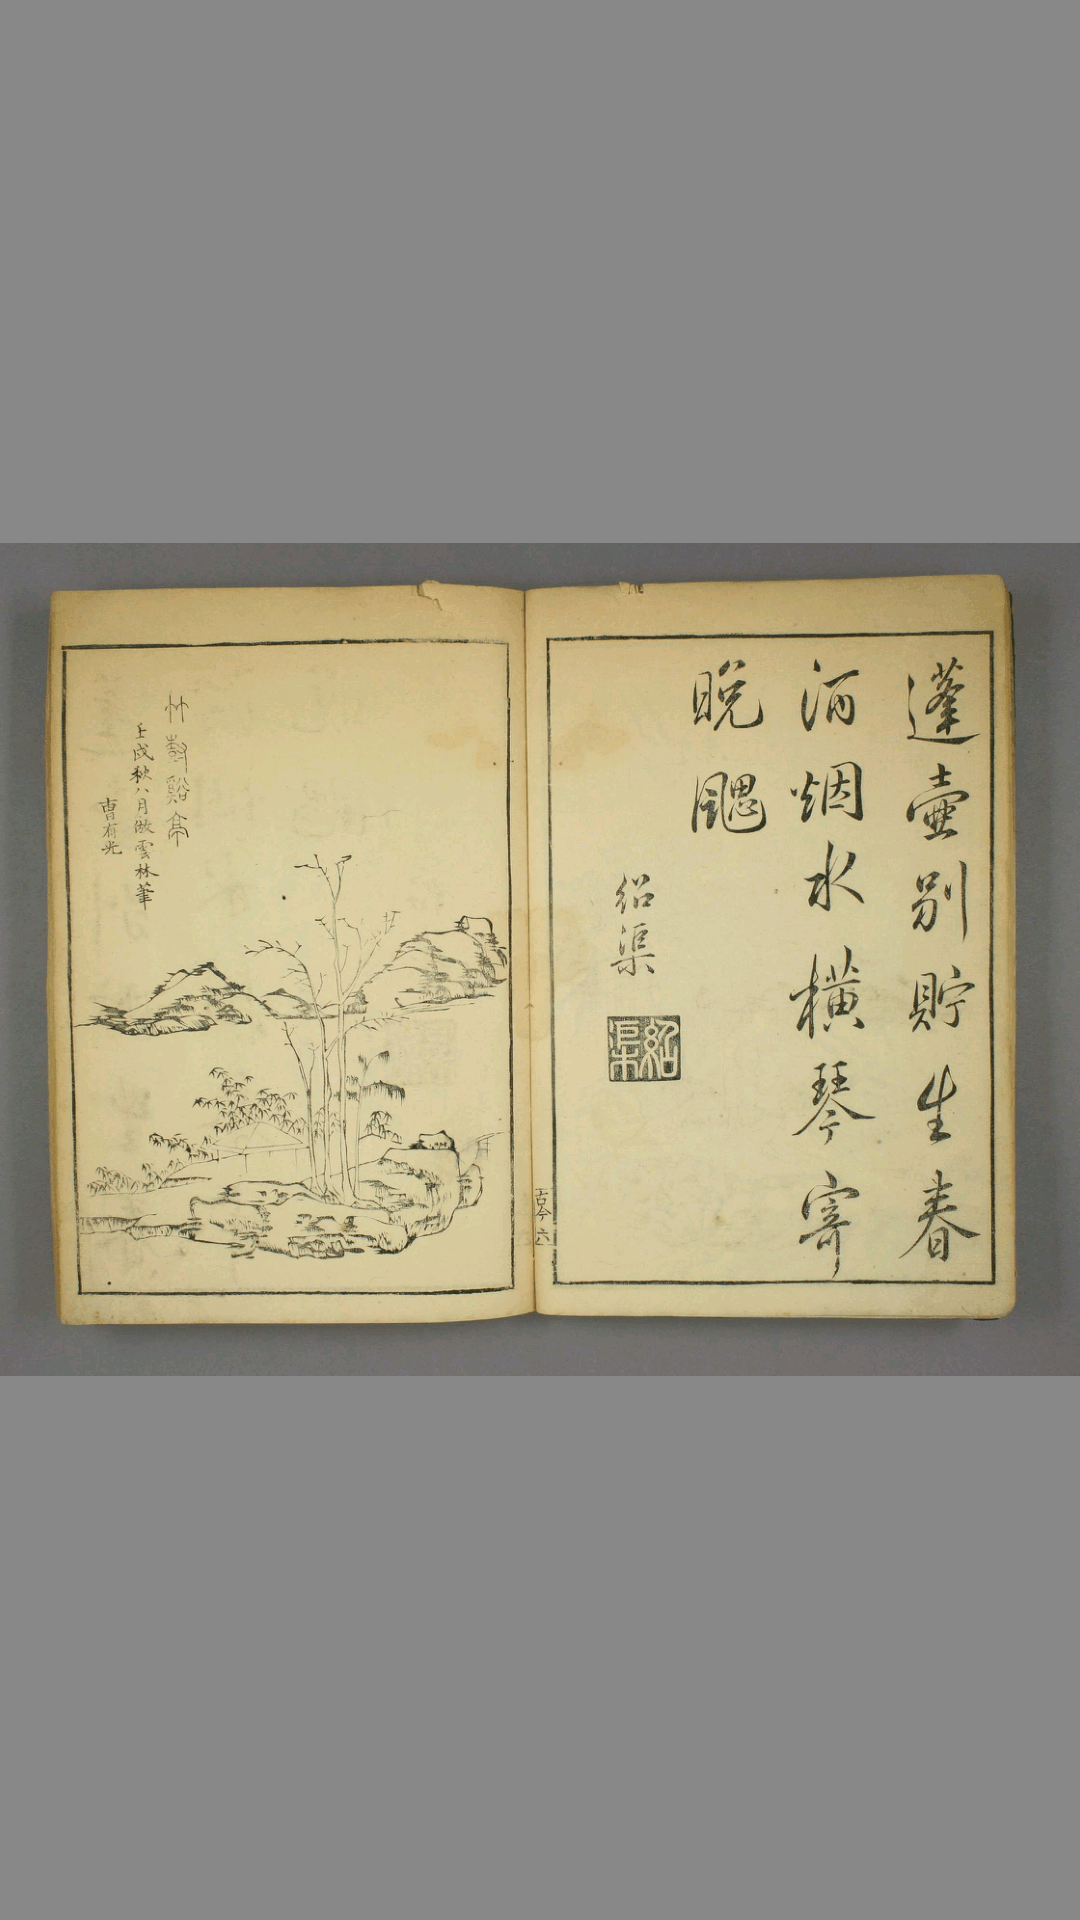 蓬壷别貯生春
酒烟水横琴寄
晚颸
绍渠
紹渠
古今
六
竹樹谿亭
壬戌秋八月倣雲林筆
曹有光